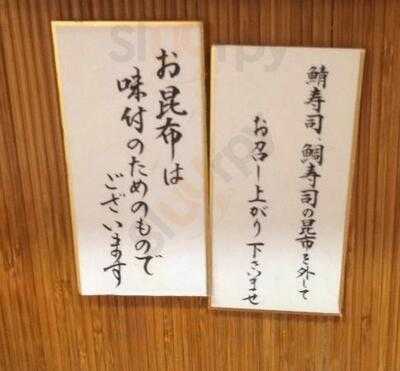 鯖寿司、鯛寿司の昆布を外して
お召し上がり下さいませ
お昆布は
味付のためのもので
ございます